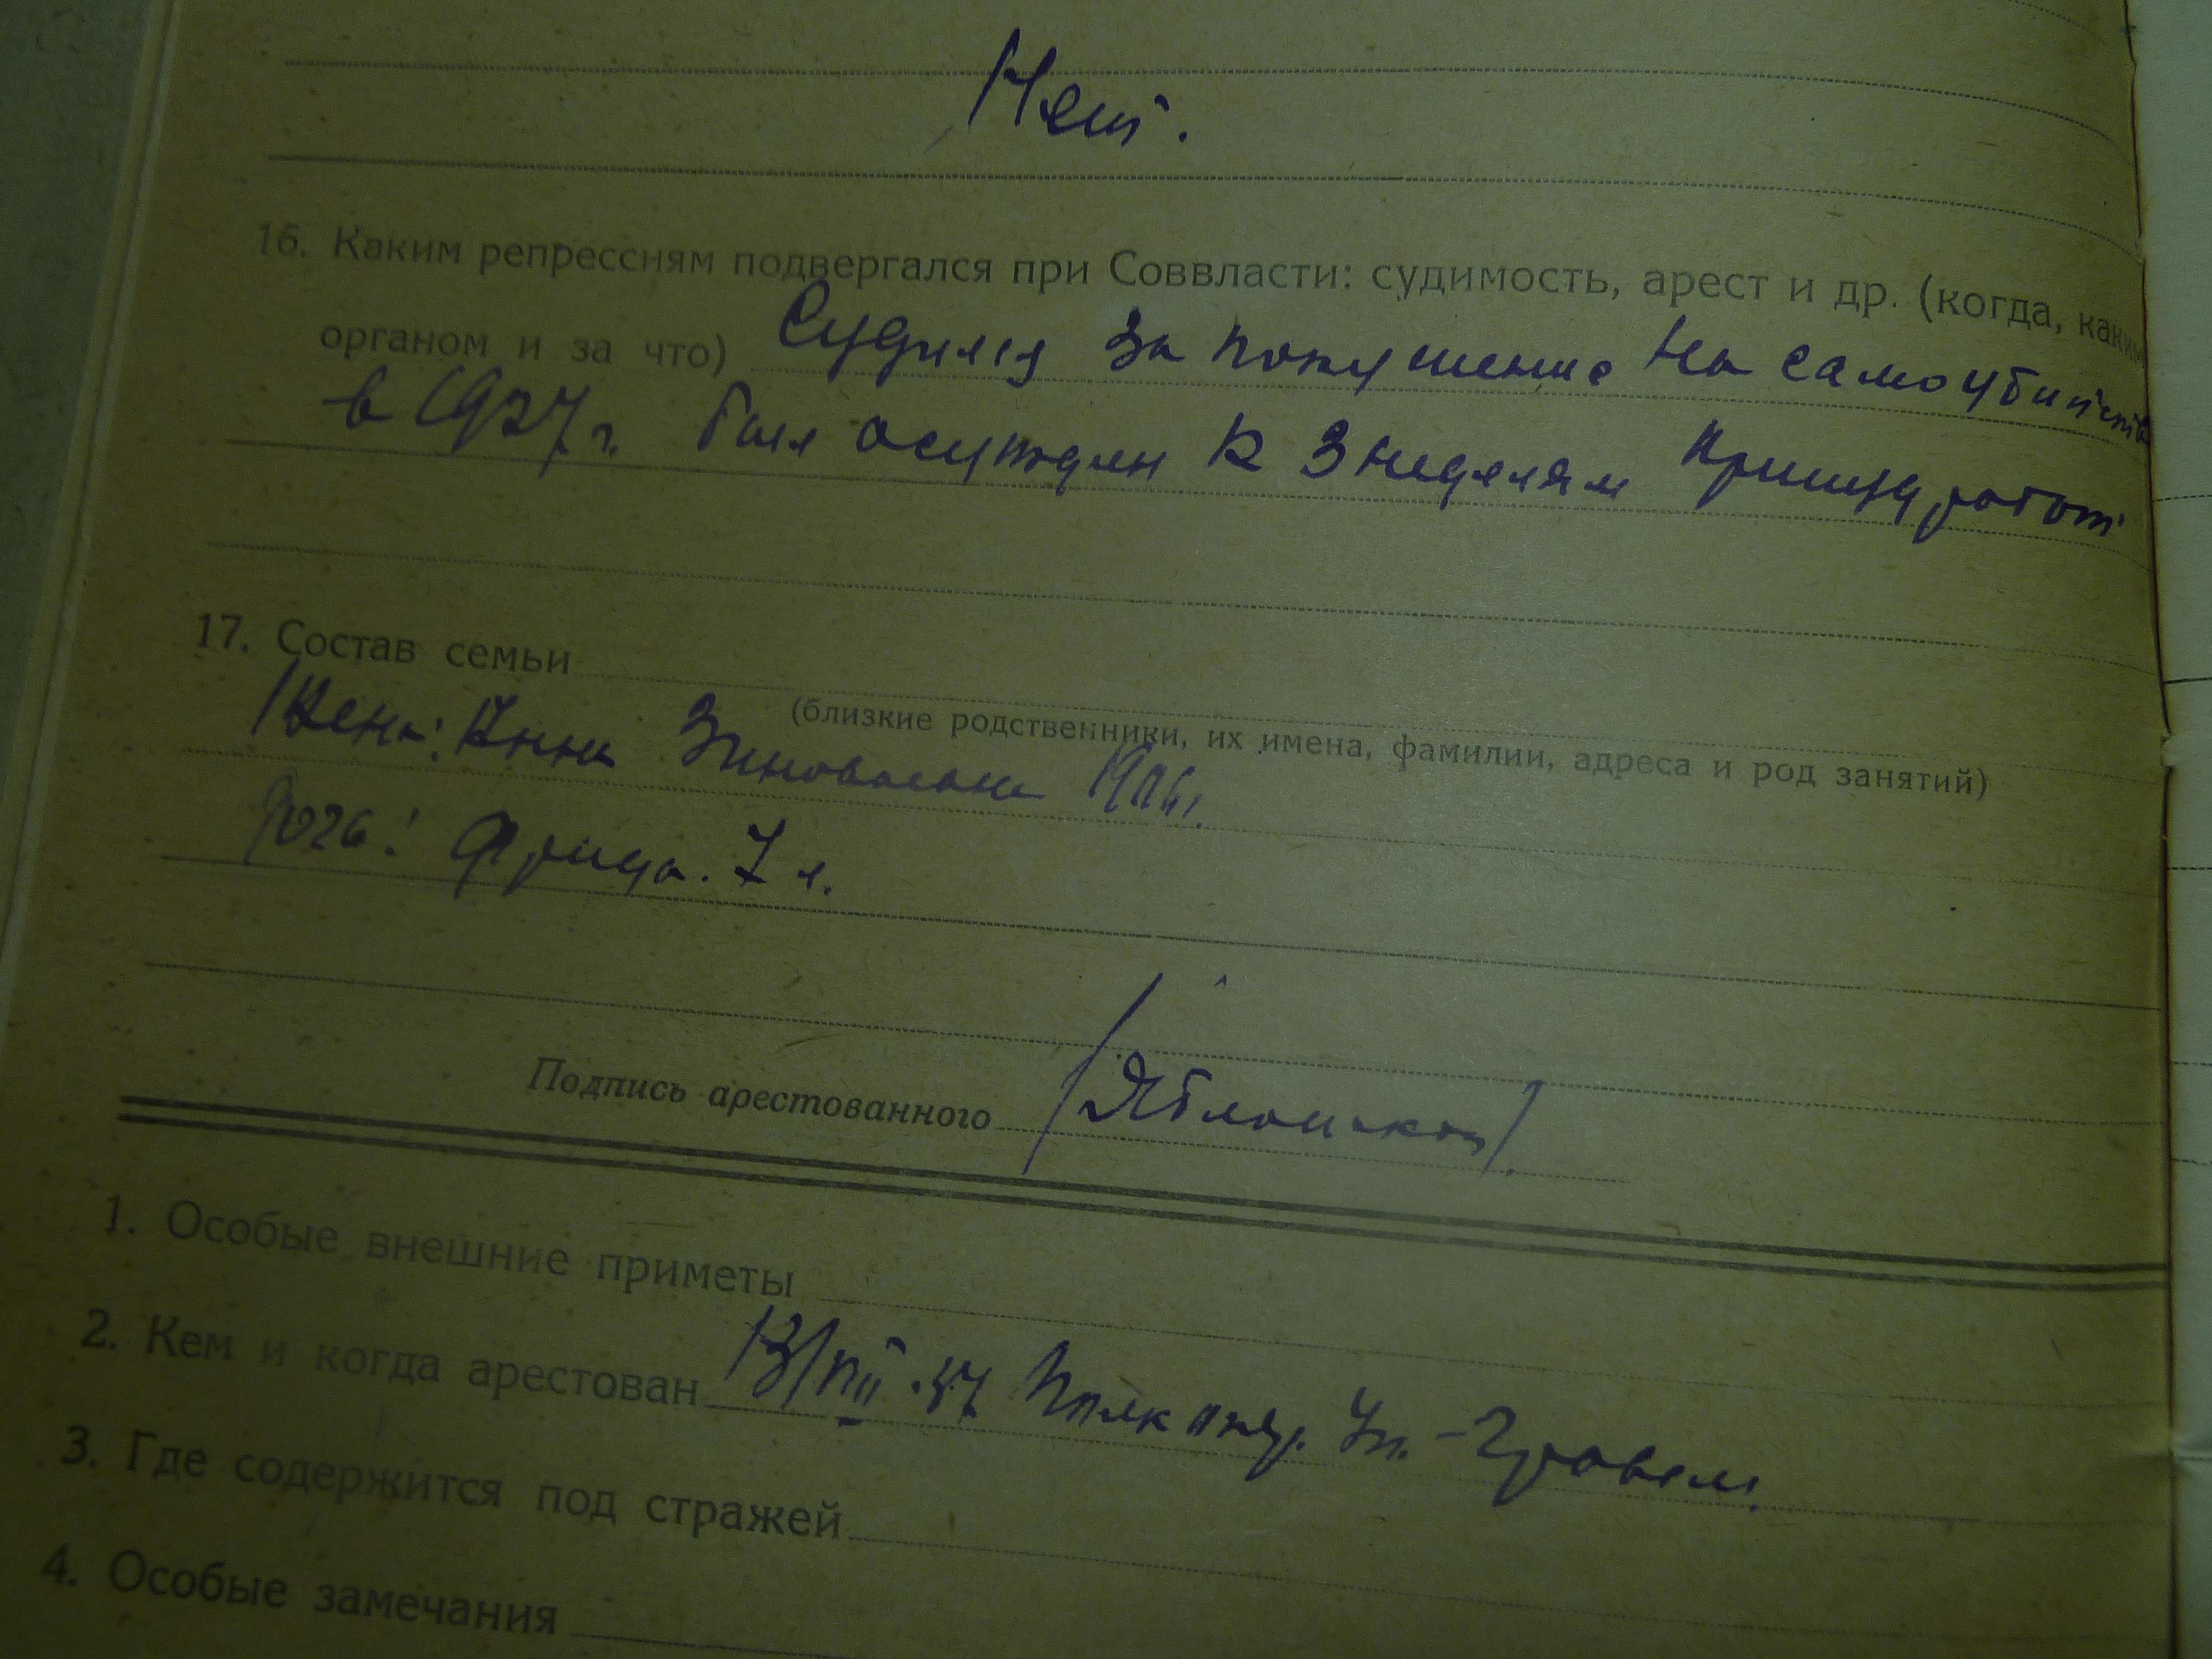 Нет.
16. Каким репрессиям подвергался при Соввласти: судимость, арест и др. (когда, каким
органом и за что) Судился за покушение на самоубийство
в 1927 г. был осужден к 3 неделям принуд работ
17. Состав семьи
(близкие родственники, их имена, фамилии, адреса и род занятий)
Жена: Анна Зиновьевна 1906 г.
Дочь: Фрида. 7 л.
Подпись арестованного /Яблонский/.
1. Особые внешние приметы
2. Кем и когда арестован 37
3. Где содержится под стражей
4. Особые замечания